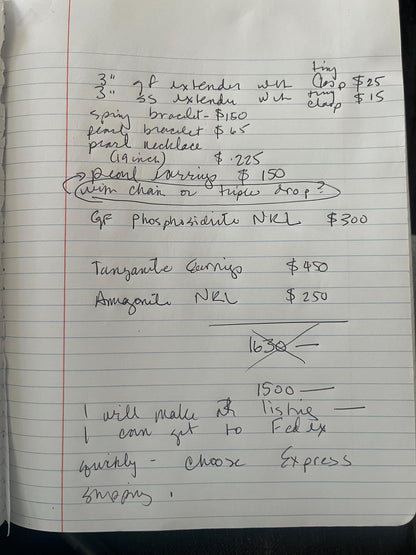 tiny
3" gf extender with clasp $25
3" ss extender with tiny clasp $15
spiny bracelet - $150
pearl bracelet $65
pearl necklace
(19 inch) $ 225
pearl earrings $ 150
with chain or triple drop?
GF phosphosiderite NKL $300
Tanzanite Earrings $450
Amazonite NKL $250
1630 —
1500 —
I will make listing —
I can get to Fedex
quickly - choose Express
shipping.